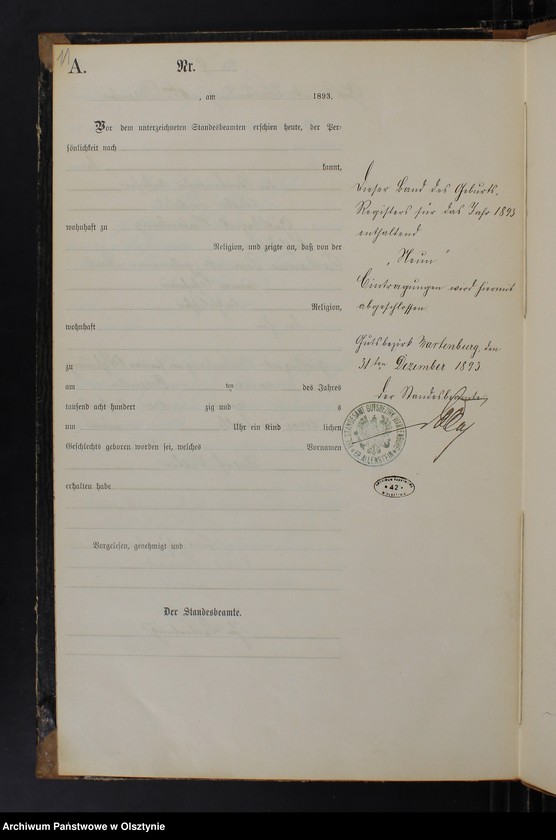 11
A.
Nr.
, am 1893.
Vor dem unterzeichneten Standesbeamten erschien heute, der Per-
sönlichkeit nach
kannt,
wohnhaft zu
Religion, und zeigte an, daß von der
Religion,
wohnhaft
zu
am ten des Jahres
tausend acht hundert zig und s
um Uhr ein Kind lichen
Geschlechts geboren worden sei, welches Vornamen
erhalten habe
Vorgelesen, genehmigt und
Der Standesbeamte.
Dieser Band des Geburts-
Registers für das Jahr 1893
enthaltend
"Neun"
Eintragungen wird hiermit
abgeschlossen
Gutsbezirk Wartenburg, den
31ten Dezember 1893
Der Standesbeamte
STANDESAMT GUTSBEZIRK WARTENBURG
KR. ALLENSTEIN
42
Archiwum Państwowe w Olsztynie